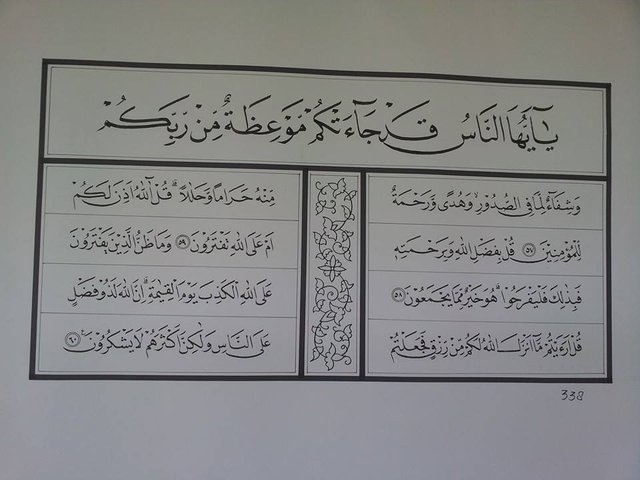 يَٰٓأَيُّهَا النَّاسُ قَدْ جَآءَتْكُمْ مَوْعِظَةٌ مِّنْ رَّبِّكُمْ
وَشِفَآءٌ لِمَا فِى الصُّدُورِ وَهُدًى وَّرَحْمَةٌ
لِّلْمُؤْمِنِيْنَ ٥٧ قُلْ بِفَضْلِ اللهِ وَبِرَحْمَتِهٖ
فَبِذٰلِكَ فَلْيَفْرَحُوْا هُوَ خَيْرٌ مِّمَّا يَجْمَعُوْنَ ٥٨
قُلْ اَرَءَيْتُمْ مَّآ اَنْزَلَ اللهُ لَكُمْ مِّنْ رِّزْقٍ فَجَعَلْتُمْ
مِّنْهُ حَرَامًا وَّحَلٰلًا ۗ قُلْ آللهُ اَذِنَ لَكُمْ
اَمْ عَلَى اللهِ تَفْتَرُوْنَ ٥٩ وَمَا ظَنُّ الَّذِيْنَ يَفْتَرُوْنَ
عَلَى اللهِ الْكَذِبَ يَوْمَ الْقِيٰمَةِ ۗ اِنَّ اللهَ لَذُوْ فَضْلٍ
عَلَى النَّاسِ وَلٰكِنَّ اَكْثَرَهُمْ لَا يَشْكُرُوْنَ ٦٠
338